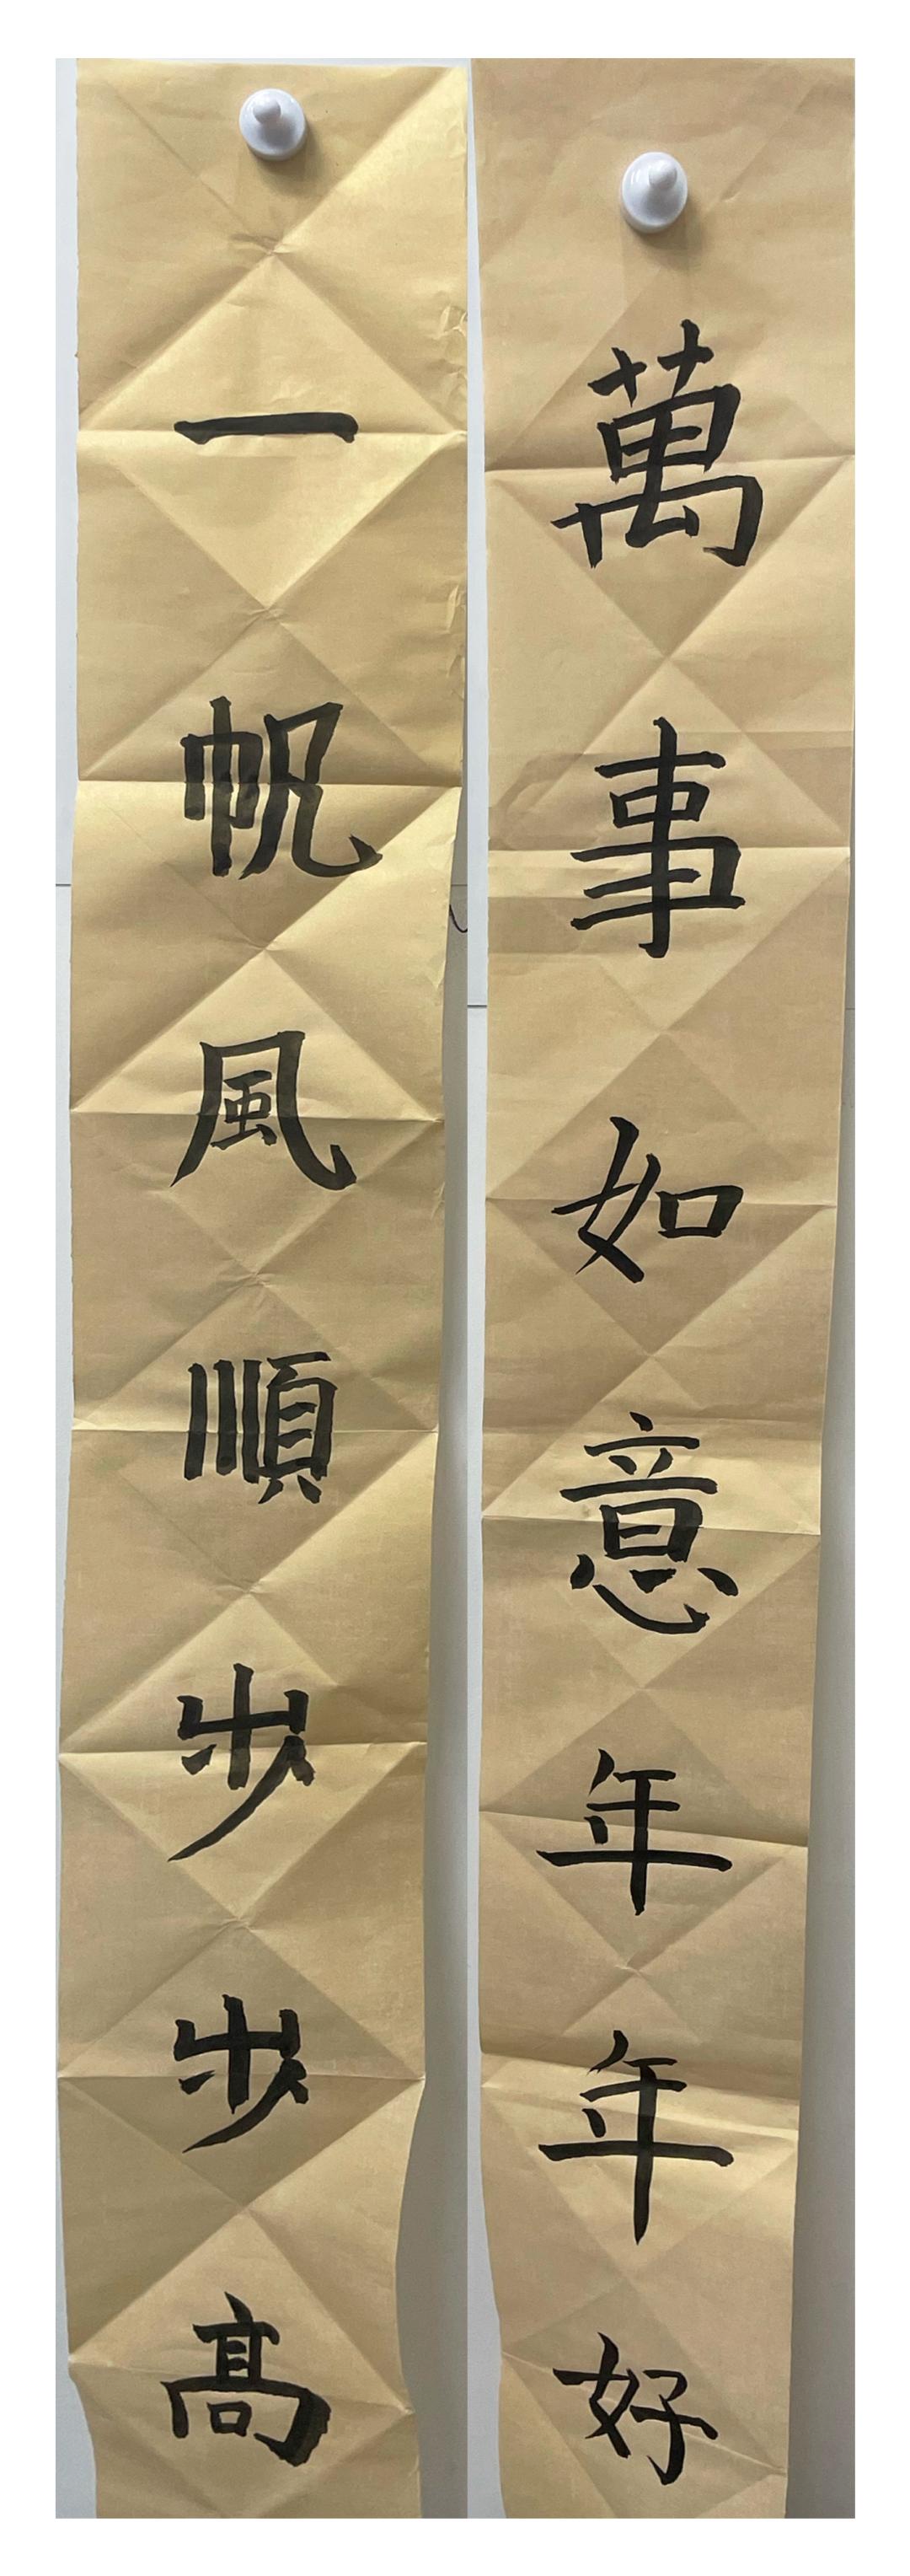 萬事如意年年好
一帆風順步步高